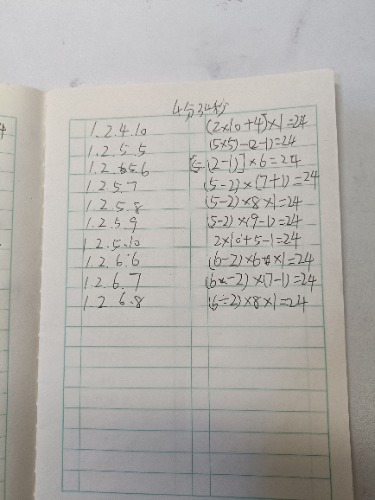 4分34秒
1.2.4.10 (2×10+4)×1=24
1.2.5.5 (5×5)-(2-1)=24
1.2.5.6 [5-(2-1)]×6=24
1.2.5.7 (5-2)×(7+1)=24
1.2.5.8 (5-2)×8×1=24
1.2.5.9 (5-2)×(9-1)=24
1.2.5.10 2×10+5-1=24
1.2.6.6 (6-2)×6×1=24
1.2.6.7 (6-2)×(7-1)=24
1.2.6.8 (6÷2)×8×1=24